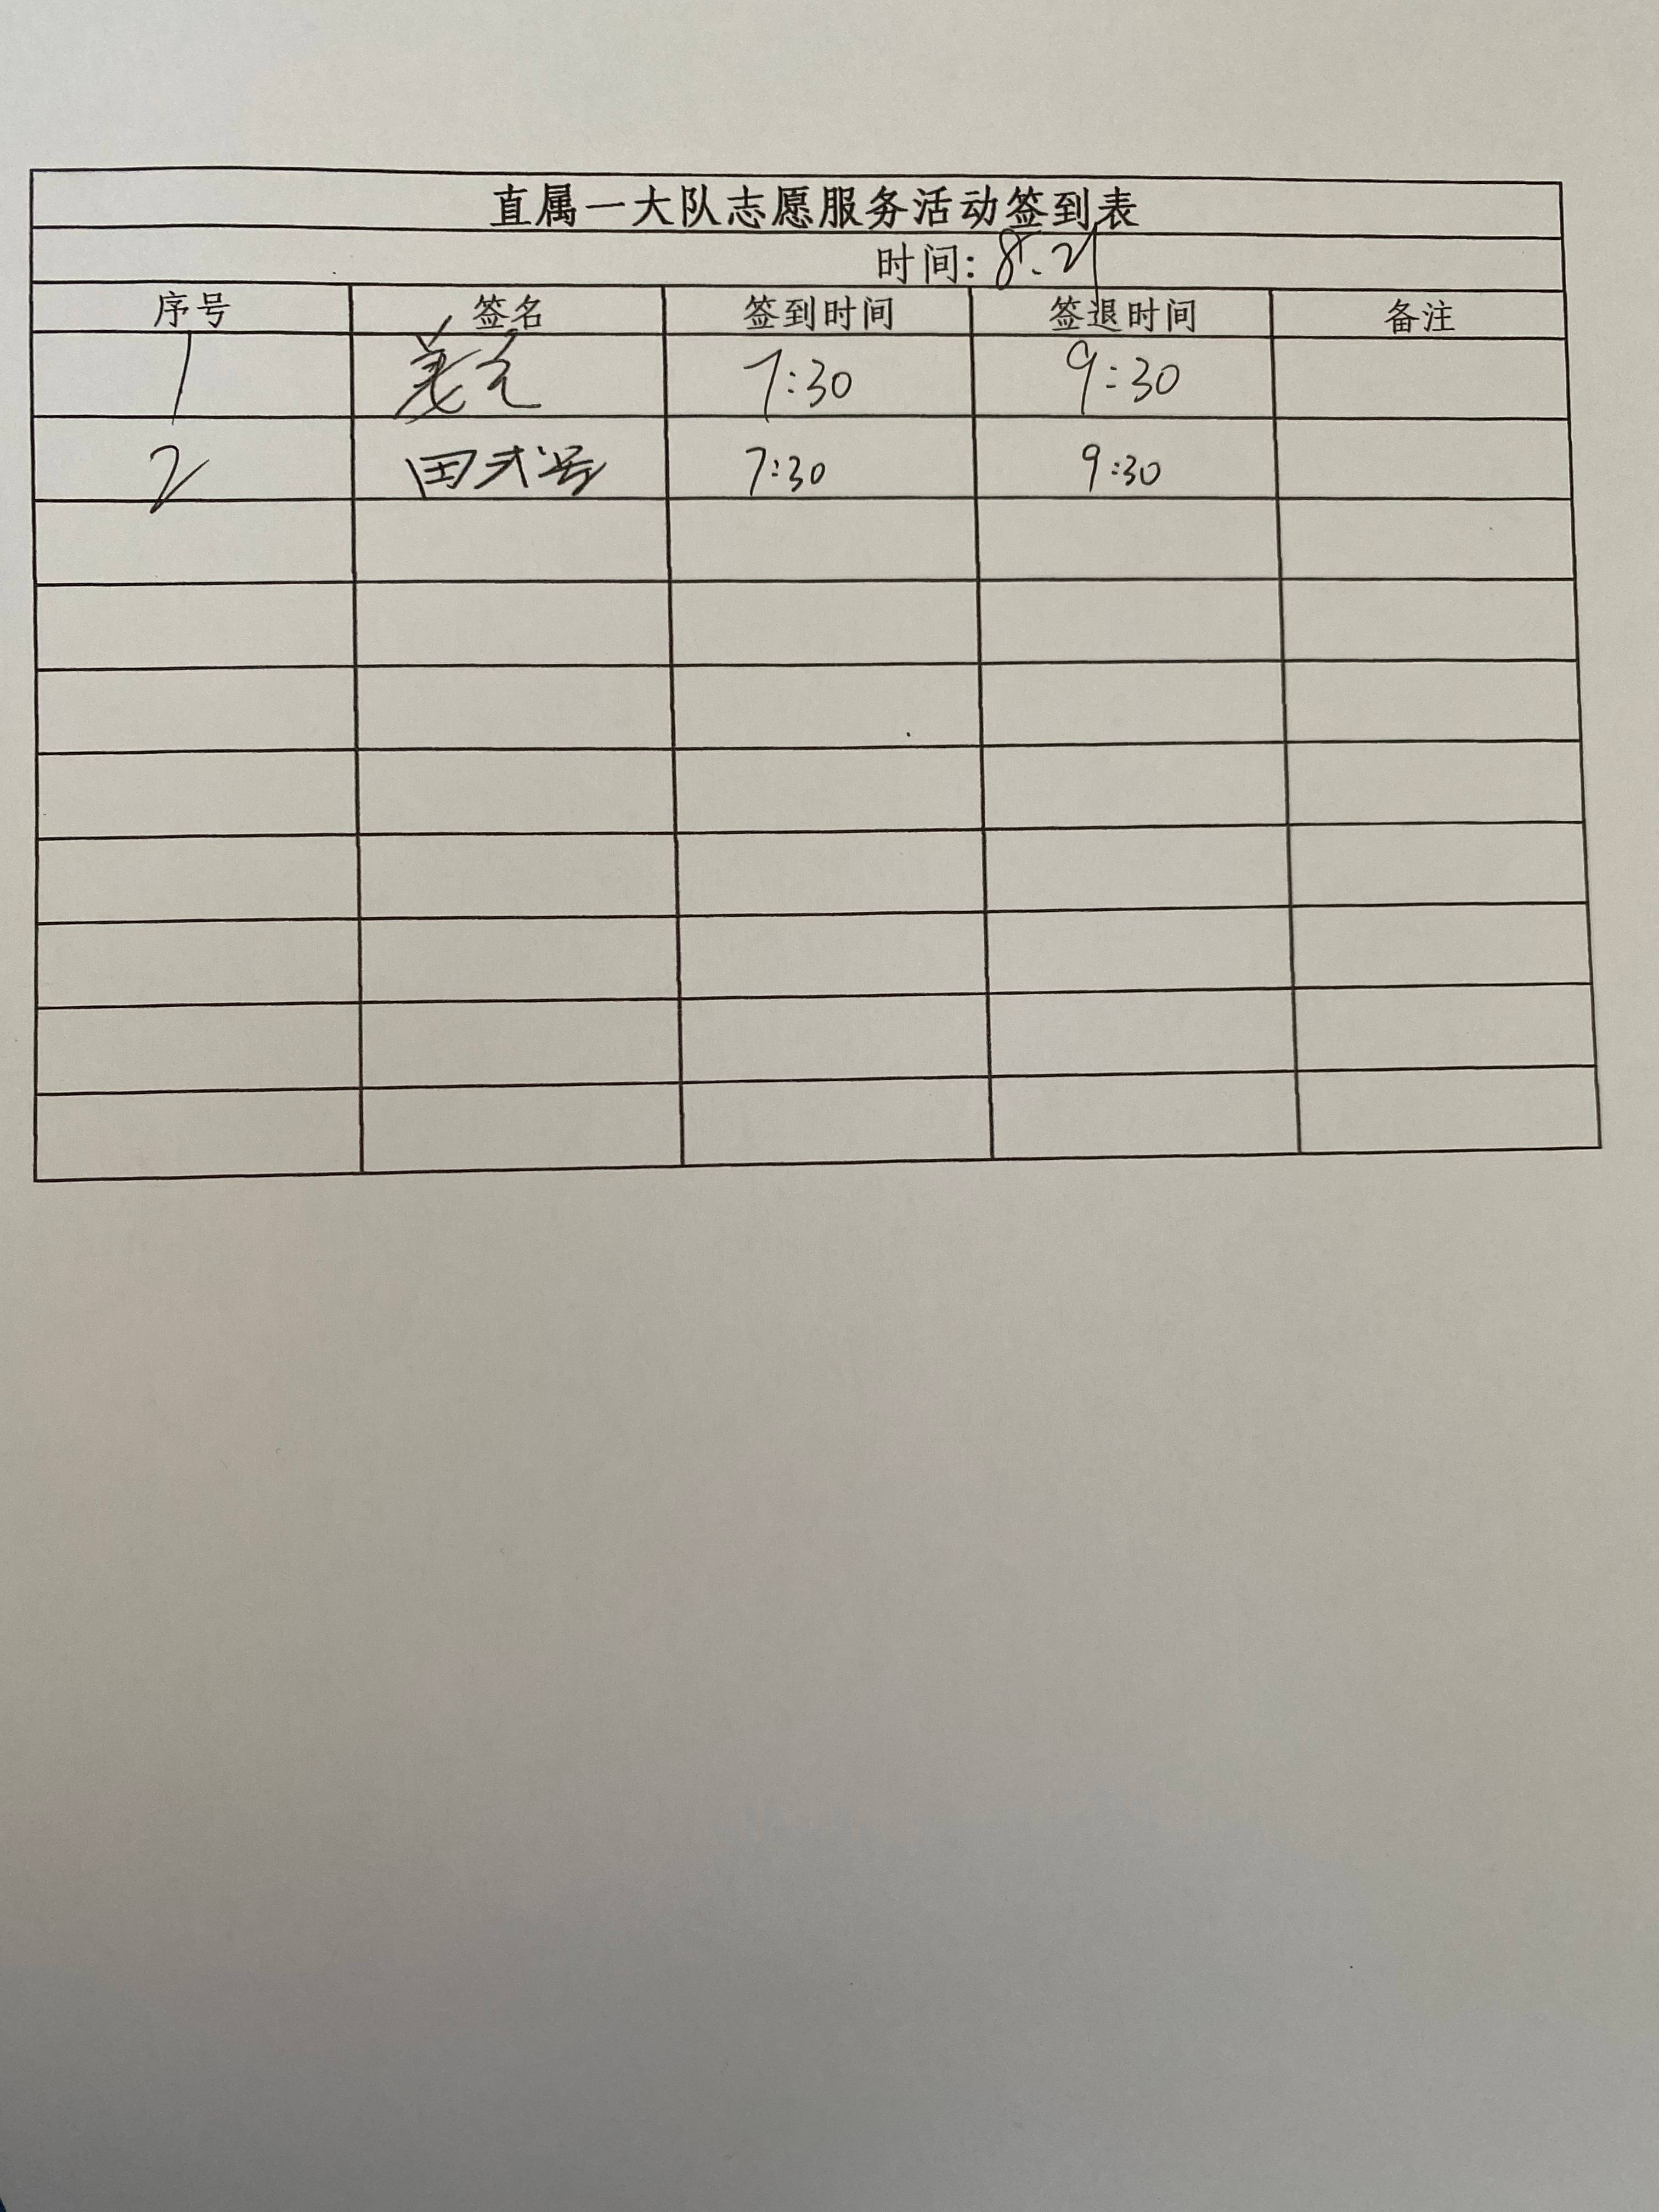 直属一大队志愿服务活动签到表
时间: 8.21
序号 签名 签到时间 签退时间 备注
1 7:30 9:30
2 田 7:30 9:30